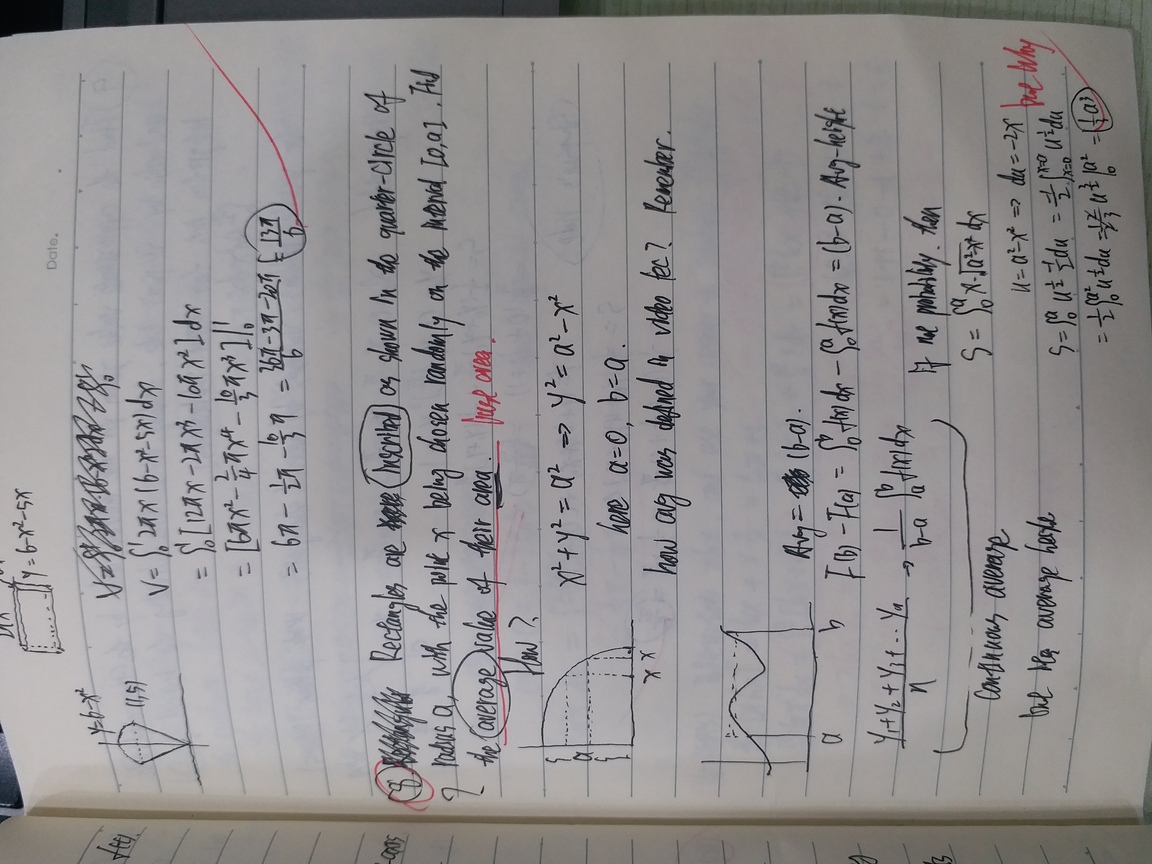 y = 6-x²-5x
Date.
y=6-x²
(1,5)
V = ∫₀¹ 2πx (6-x²-5x) dx
= ∫₀¹ [12πx - 2πx³ - 10πx²] dx
= [6πx² - 2/4 πx⁴ - 10/3 πx³] |₀¹
= 6π - 1/2 π - 10/3 π = (36π-3π-20π)/6 = 13π/6
8 Rectangles are inscribed as shown in the quarter-circle of
? radius a, with the point x being chosen randomly on the interval [0,a]. Find
the average value of their area.
How?
a
x x
x² + y² = a² ⇒ y² = a² - x²
here a=0, b=a.
how avg was defined in video lec? Remember.
a b
Avg = (b-a).
F(b) - F(a) = ∫₀ᵇ f(x) dx - ∫₀ᵃ f(x) dx = (b-a). Avg-height
(y₁+y₂+y₃+...yₙ)/n → 1/(b-a) ∫ₐᵇ f(x) dx
continuous average
average
If not probability. then
S = ∫₀ᵃ x·√(a²-x²) dx
u = a²-x² ⇒ du = -2x
Why
S = ∫₀ᵃ u^(1/2) -1/2 du = -1/2 ∫ₓ₌₀ˣ⁼ᵃ u^(1/2) du
= 1/2 ∫₀^(a²) u^(1/2) du = 1/2 2/3 u^(3/2) |₀^(a²) = 1/3 a³